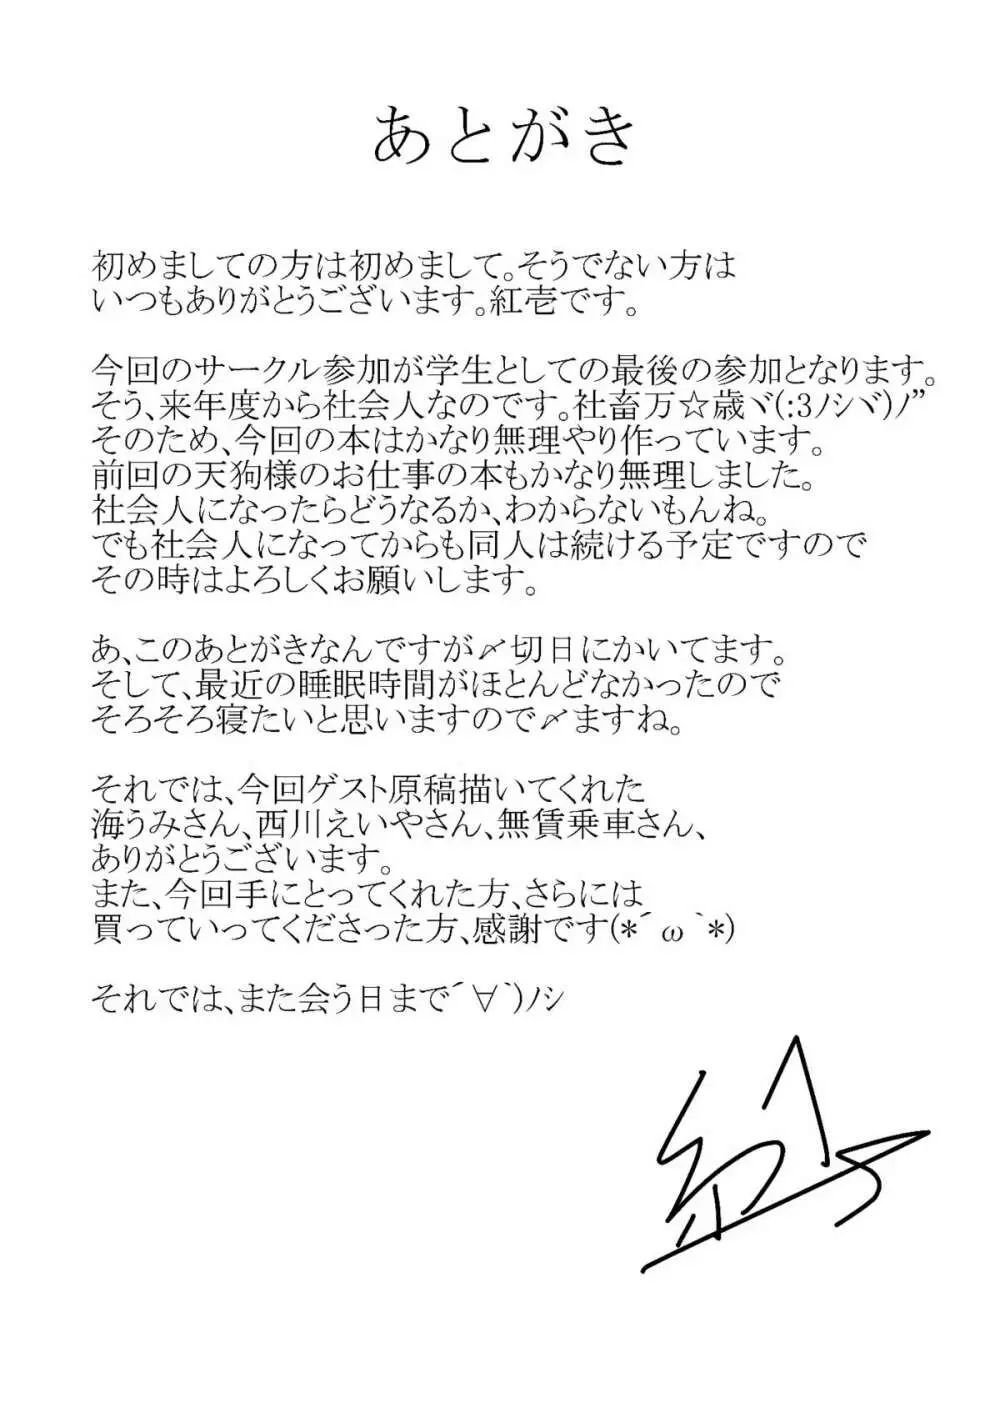 あとがき
初めましての方は初めまして。そうでない方は
いつもありがとうございます。紅壱です。
今回のサークル参加が学生としての最後の参加となります。
そう、来年度から社会人なのです。社畜万☆歳ヾ(:3ﾉｼヾ)ﾉ”
そのため、今回の本はかなり無理やり作っています。
前回の天狗様のお仕事の本もかなり無理しました。
社会人になったらどうなるか、わからないもんね。
でも社会人になってからも同人は続ける予定ですので
その時はよろしくお願いします。
あ、このあとがきなんですが〆切日にかいてます。
そして、最近の睡眠時間がほとんどなかったので
そろそろ寝たいと思いますので〆ますね。
それでは、今回ゲスト原稿描いてくれた
海うみさん、西川えいやさん、無賃乗車さん、
ありがとうございます。
また、今回手にとってくれた方、さらには
買っていってくださった方、感謝です(*´ω｀*)
それでは、また会う日まで´∀｀)ﾉｼ